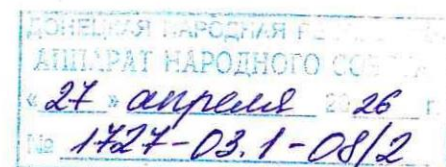 ДОНЕЦКАЯ НАРОДНАЯ
АППАРАТ НАРОДНОГО
«27» апреля 2026 г.
№ 1727-03.1-08/2